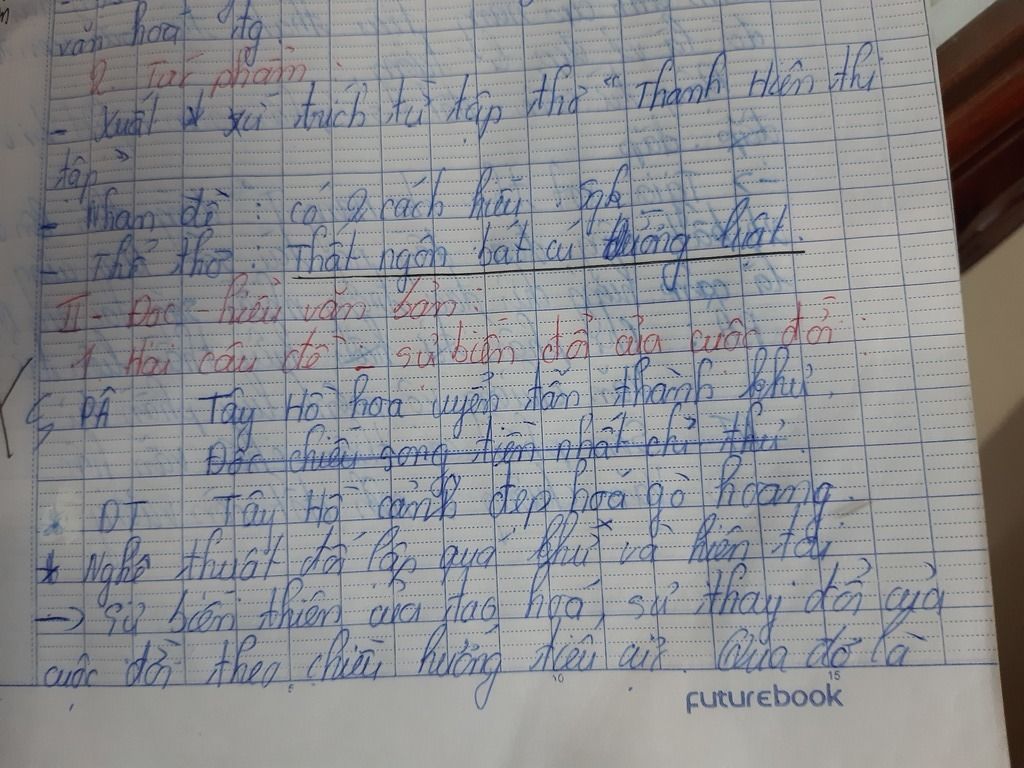 văn hoá ttg.
2. Tác phẩm:
- Xuất xứ trích từ tập thơ "Thanh Hiên thi
tập"
- Nhan đề: có 2 cách hiểu sgk
- Thể thơ: Thất ngôn bát cú đường luật.
II- Đọc - hiểu văn bản:
1 Hai câu đề: sự biến đổi của cuộc đời:
PÂ Tây Hồ hoa uyển tẫn thành khư
Độc điếu song tiền nhất chỉ thư
DT Tây Hồ cảnh đẹp hoá gò hoang.
* Nghệ thuật đối lập quá khứ và hiện tại
-> Sự biến thiên của tạo hoá, sự thay đổi của
cuộc đời theo chiều hướng tiêu cực. Qua đó là
5 10 15
FUTUREBOOK